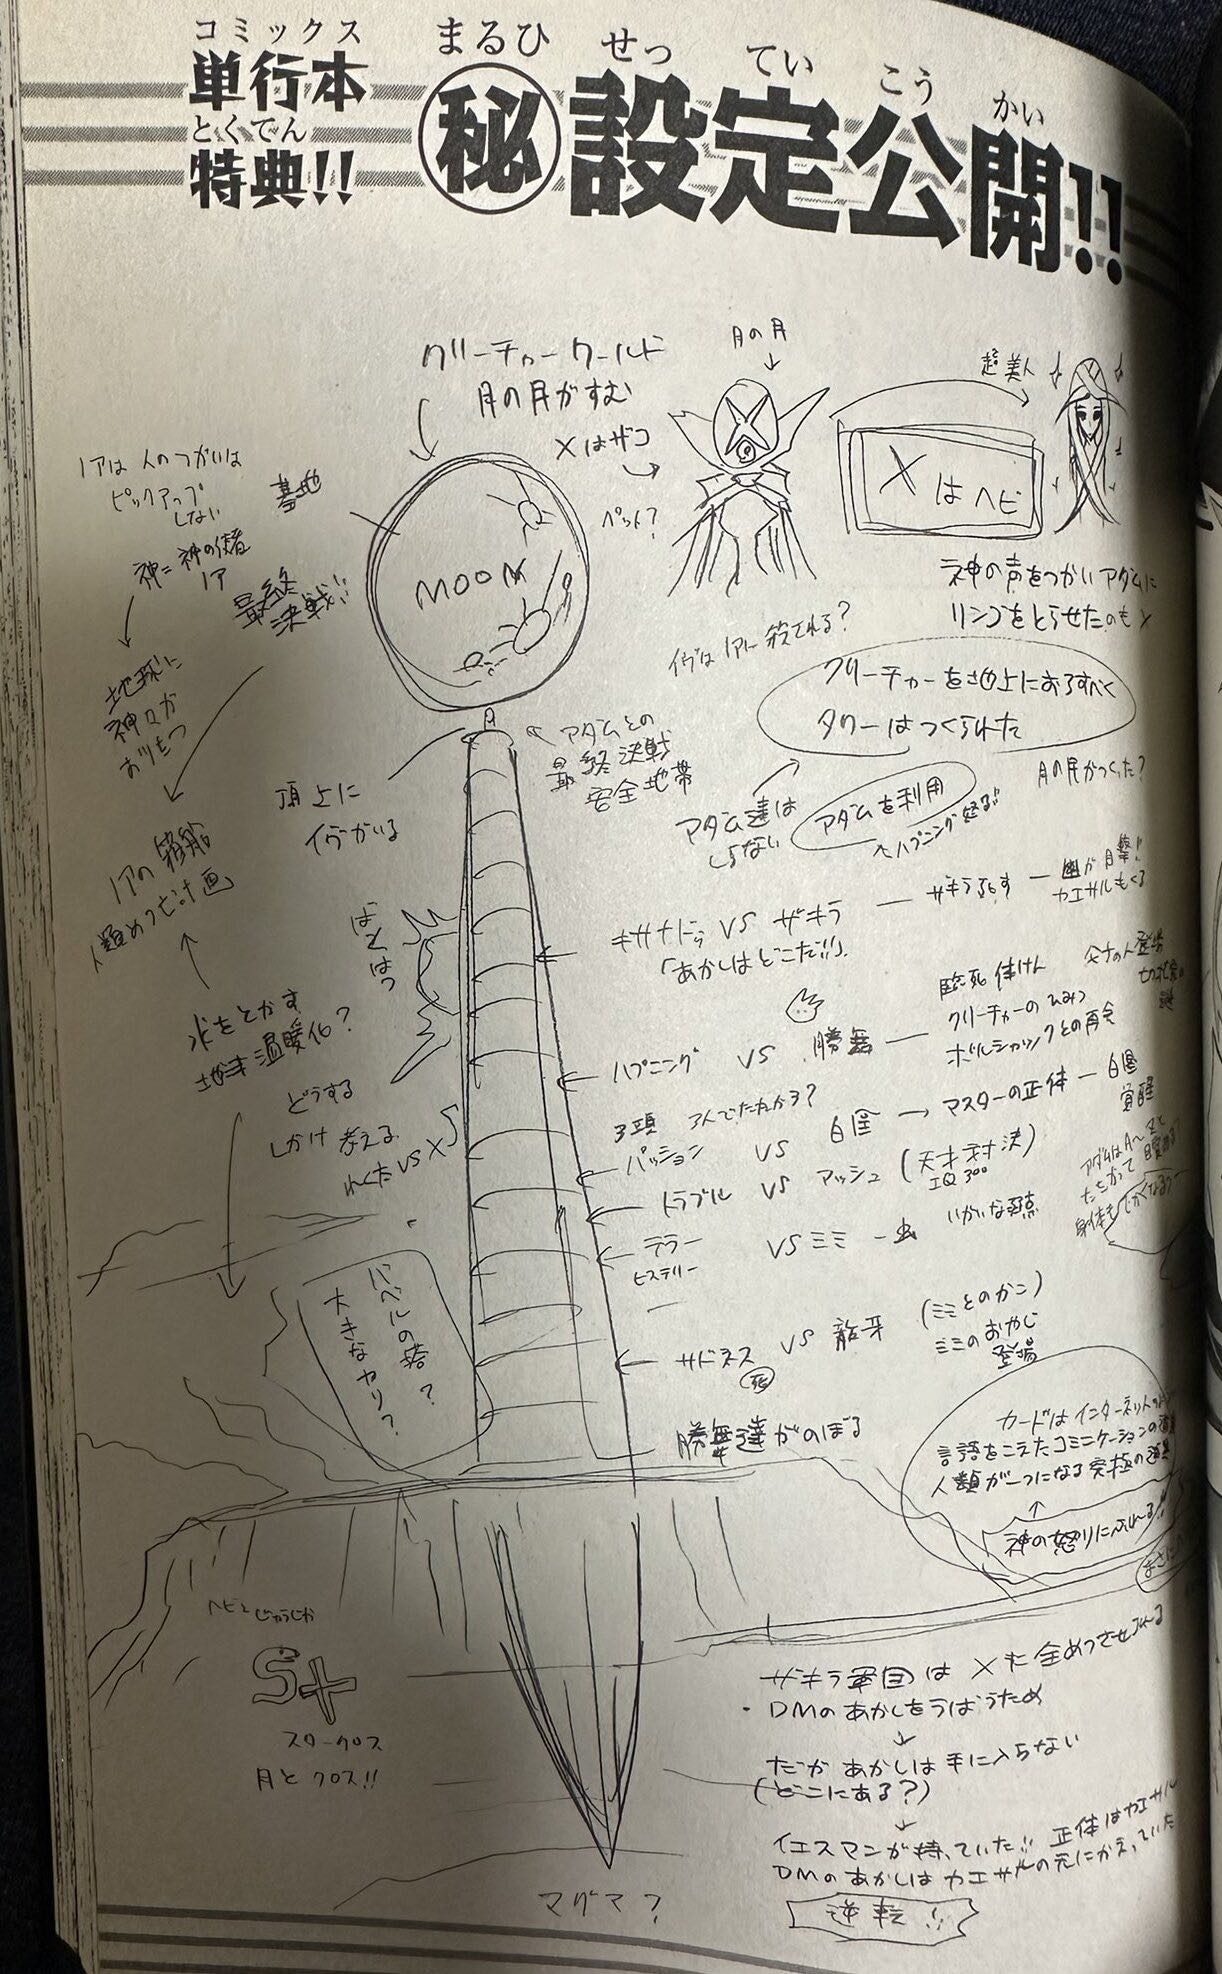 コミックス
単行本
とくてん
特典!!
まるひ せっ てい こう かい
㊙設定公開!!
クリーチャーワールド
月の月がすむ
月の月
超美人
Xはザコ
ペット?
Xはヘビ
ノアは人のつかいは
ピックアップ
しない
神=神の使者
ノア
基地
最終
決戦!!
MOON
地球に
神々が
おりたつ
神の声をつかいアダムに
リンゴをとらせたのもX
イヴはノアに殺される?
クリーチャーを地上におろすべく
タワーはつくられた
月の民がつくった?
アダムとの
最終決戦
安全地帯
頂上に
イヴがいる
アダム達は
しらない
アダムを利用
ハプニング怒る!!
ノアの箱船
人類めつ亡計画
氷をとかす
地球温暖化?
ばさばさ
キサナドゥ VS ザキラ
ザキラ殺す
カエサルもくる
「あかしはどこだ!!」
ハプニング VS 勝舞
臨死体けん
クリーチャーのひみつ
ボルシャックとの再会
父さの人登場
どうする
しかけ考える
れくた VS X
3頭
パッション VS 白凰 → マスターの正体 — 白凰
覚醒
トラブル VS アッシュ (天才対決)
IQ300
テラー VS ミミ — 虫
ヒステリー
バベルの塔?
大きなヤリ?
サドネス VS 龍牙 (ミミとのかこ)
死
ミミのおやじ
登場
勝舞達がのぼる
カードはインターネットの
言語をこえたコミニケーションの
人類が一つになる究極の
神の怒りにふれる!!
ヘビとじゅうじか
S+
スタークロス
月とクロス!!
ザキラ軍団はXに全めつさせられる
・DMのあかしをうばうため
↓
だがあかしは手に入らない
(どこにある?)
↓
イエスマンが持っていた!! 正体はカエサル
DMのあかしはカエサルの元にかえっていた
逆転!!
マグマ?